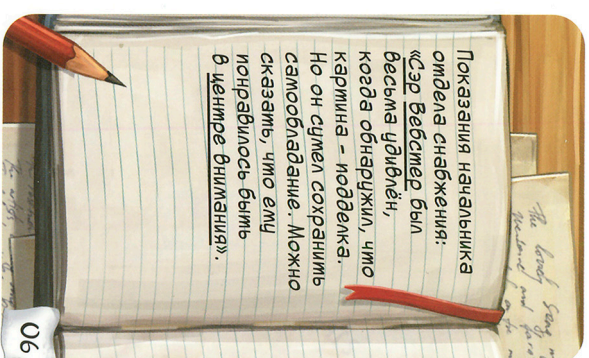 Показания начальника
отдела снабжения:
«Сэр Вебстер был
весьма удивлён,
когда обнаружил, что
картина - подделка.
Но он сумел сохранить
самообладание. Можно
сказать, что ему
понравилось быть
в центре внимания».
The lovely
and
06